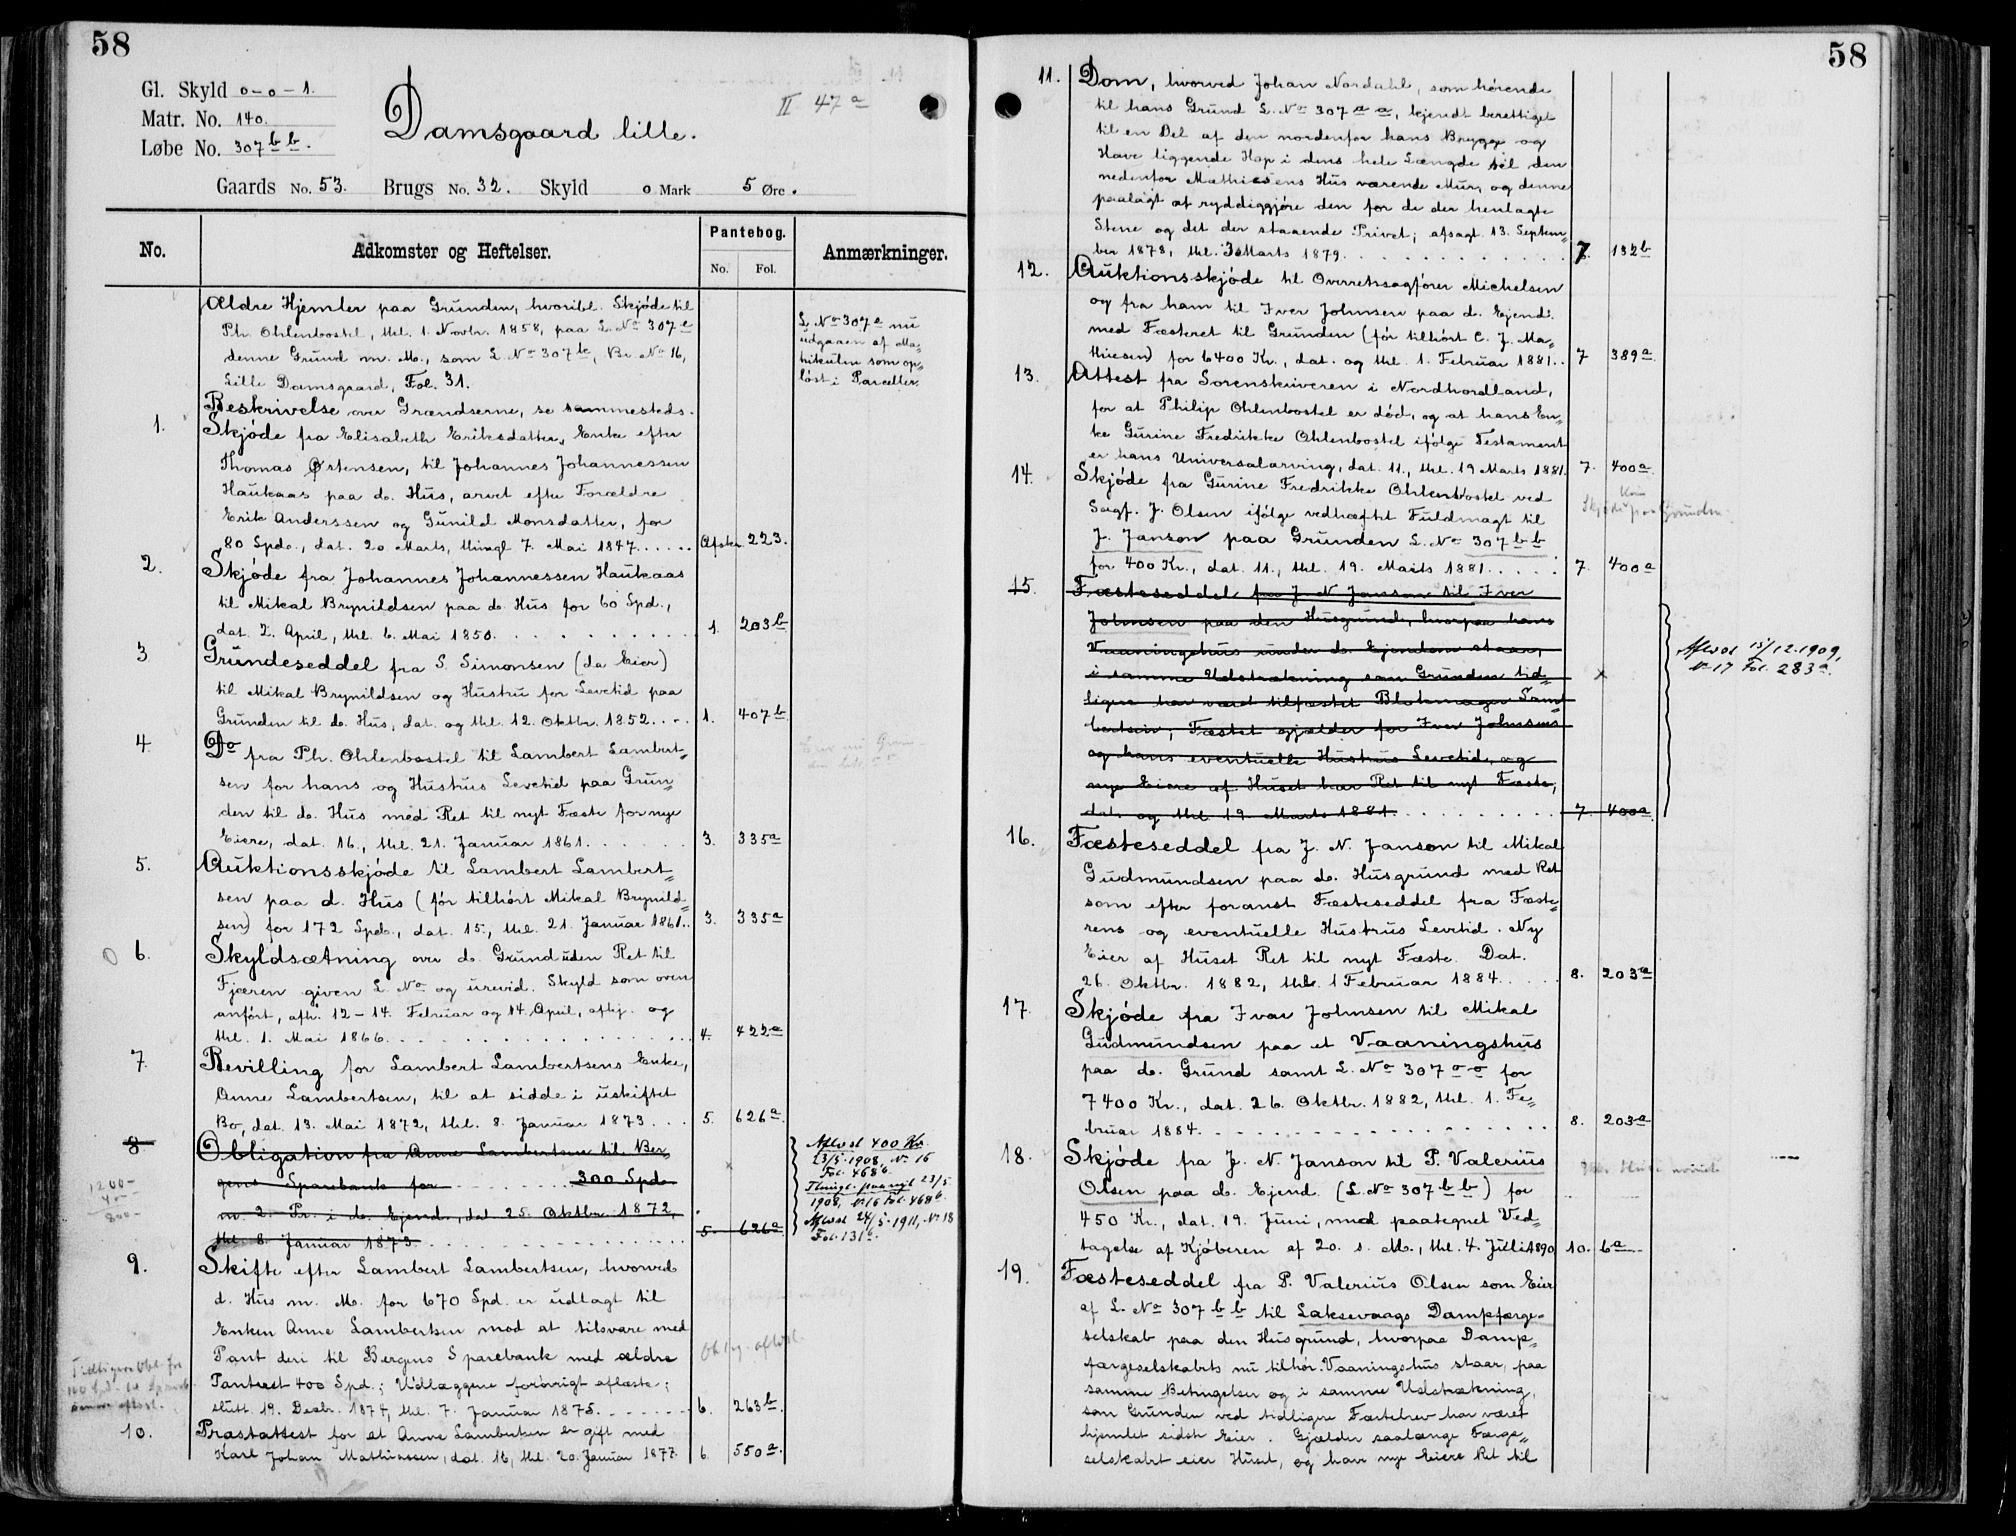 58
Gl. Skyld 0-0-1.
Matr. No. 140.
Løbe No. 307 b b.
Damsgaard lille.
II 47 a
Gaards No. 53. Brugs No. 32. Skyld 0 Mark 5 Øre.
No. Adkomster og Heftelser. Pantebog. No. Fol. Anmærkninger.
Ældre Hjemler paa Grunden, hvoribl. Skjøde til
Ph. Ohlenbostel, thl. 1. Novbr. 1858, paa L. No 307 e
denne Grund m. M., som L. No 307 k, Br. No 16,
Lille Damsgaard, Fol. 31.
L. No 307 e nu
udgaaen af Ma-
trikulen som op-
løst i Parceller.
Beskrivelse over Grændserne, se sammesteds.
1. Skjøde fra Elisabeth Eriksdatter, Enke efter
Thomas Ørtensen, til Johannes Johannessen
Haukaas paa d. Hus, arvet efter Forældre
Erik Anderssen og Gunild Monsdatter, for
80 Spd., dat. 20 Marts, tingl 7. Mai 1847. . . . . . Afskr. 223.
2. Skjøde fra Johannes Johannessen Haukaas
til Mikal Brynildsen paa d. Hus for 60 Spd.,
dat. 2. April, thl. 6. Mai 1850. 1. 203 b
3 Grundeseddel fra S. Simonsen (da Eier)
til Mikal Brynildsen og Hustru for Levetid paa
Grunden til d. Hus, dat. og thl. 12. Oktbr. 1852. . . 1. 407 b
4. Do fra Ph. Ohlenbostel til Lambert Lambert-
sen for hans og Hustrus Levetid paa Grun-
den til d. Hus med Ret til nyt Fæste for nye
Eiere, dat. 16., thl. 21. Januar 1861. 3. 335 a
5. Auktionsskjøde til Lambert Lambert-
sen paa d. Hus (før tilhørt Mikal Brynild-
sen) for 172 Spd., dat. 15., thl. 21. Januar 1861. . 3. 335 a
6. Skyldsætning over d. Grund uden Ret til
Fjæren given L. No og urevid. Skyld som oven
anført, afh. 12-14. Februar og 14 April, afhj. og
thl. 1. Mai 1866. 4. 422 a
7. Bevilling for Lambert Lambertsens Enke,
Anne Lambertsen, til at sidde i uskiftet
Bo, dat. 13. Mai 1872, thl. 8. Januar 1873. . . 5. 626 a
8 Obligation fra Anne Lambertsen til Ber-
gens Sparebank for 300 Spd.
m. 2. Pr. i d. Ejend., dat. 25. Oktbr. 1872,
thl. 8. Januar 1873. 5. 626 a
Aflæst 400 Kr.
23/5 1908, No 16
Fol. 468 b.
Thingl. paany 23/5
1908, No 16 Fol. 468 b.
Aflæst 24/5 1911, No 18
Fol. 131 a.
1200-
400-
800-
9. Skifte efter Lambert Lambertsen, hvorved
d. Hus m. M. for 670 Spd. er udlagt til
Enken Anne Lambertsen mod at tilsvare med
Pant deri til Bergens Sparebank med ældre
Panteret 400 Spd.; Udlæggene forøvrigt aflæste;
slutt. 19. Decbr. 1874, thl. 7. Januar 1875. 6. 263 b.
10. Præstattest for at Anne Lambertsen er gift med
Karl Johan Mathiassen, dat. 16, thl. 20. Januar 1877. 6. 550 a.
58
11. Dom, hvorved Johan Nordahl, som hørende
til hans Grund L. No 307 a a, kjendt berettiget
til en Del af den nordenfor hans Brygge og
Have liggende Hop i dens hele Længde til den
nedenfor Mathiesens Hus værende Mur, og denne
paalagt at ryddiggjøre den for de der henlagte
Stene og det der staaende Privet; afsagt 13. Septem-
ber 1878, thl. 3 Marts 1879. 7. 132 b
12. Auktionsskjøde til Overretssagfører Michelsen
og fra ham til Iver Johnsen paa d. Ejend.
med Fæsteret til Grunden (før tilhørt C. J. Ma-
thiesen) for 6400 Kr., dat. og thl. 1. Februar 1881. . 7 389 a.
13. Attest fra Sorenskriveren i Nordhordland,
for at Philip Ohlenbostel er død, og at hans En-
ke Gurine Fredrikke Ohlenbostel ifølge Testament
er hans Universalarving, dat. 11., thl. 19 Marts 1881. 7. 400 a
14. Skjøde fra Gurine Fredrikke Ohlenbostel ved
Sagf. J. Olsen ifølge vedhæftet Fuldmagt til
J. Janson paa Grunden L. No 307 b b
for 400 Kr., dat. 11., thl. 19. Marts 1881. 7. 400 a
Kun
Skjøde paa Grunden.
15. Fæsteseddel fra J. N. Janson til Iver
Johnsen paa den Husgrund, hvorpaa hans
Vaaningshus under d. Ejendom staar,
i samme Udstrækning som Grunden tid-
ligere har været tilfæstet Blokmager Lam-
bertsen; Fæstet gjælder for Iver Johnsens
og hans eventuelle Hustrus Levetid, og
nye Eiere af Huset har Ret til nyt Fæste;
dat. og thl. 19 Marts 1881. 7. 400 a
Aflæst 15/12 1909,
No 17 Fol. 283 a.
16. Fæsteseddel fra J. N. Janson til Mikal
Gudmundsen paa d. Husgrund med Ret
som efter foranst Fæsteseddel fra Fæste-
rens og eventuelle Hustrus Levetid. Ny
Eier af Huset Ret til nyt Fæste. Dat.
26. Oktbr. 1882, thl. 1 Februar 1884. 8. 203 a
17. Skjøde fra Ivar Johnsen til Mikal
Gudmundsen paa et Vaaningshus
paa d. Grund samt L. No 307 o o for
7400 Kr., dat. 26. Oktbr. 1882, thl. 1. Fe-
bruar 1884. 8. 203 a
18. Skjøde fra J. N. Janson til P. Valerius
Olsen paa d. Ejend. (L. No 307 b b) for
450 Kr., dat. 19. Juni, med paategnet Ved-
tagelse af Kjøberen af 20. s. M., thl. 4. Juli 1890 10. 6 a
19. Fæsteseddel fra P. Valerius Olsen som Eier
af L. No 307 b b til Laksevaags Dampfærge-
selskab paa den Husgrund, hvorpaa Damp-
færgeselskabets nu tilhør. Vaaningshus staar, paa
samme Betingelser og i samme Udstrækning,
som Grunden ved tidligere Fæstebrev har været
hjemlet sidste Eier. Gjælder saalænge Færge-
selskabet eier Huset, og have nye Eiere Ret til